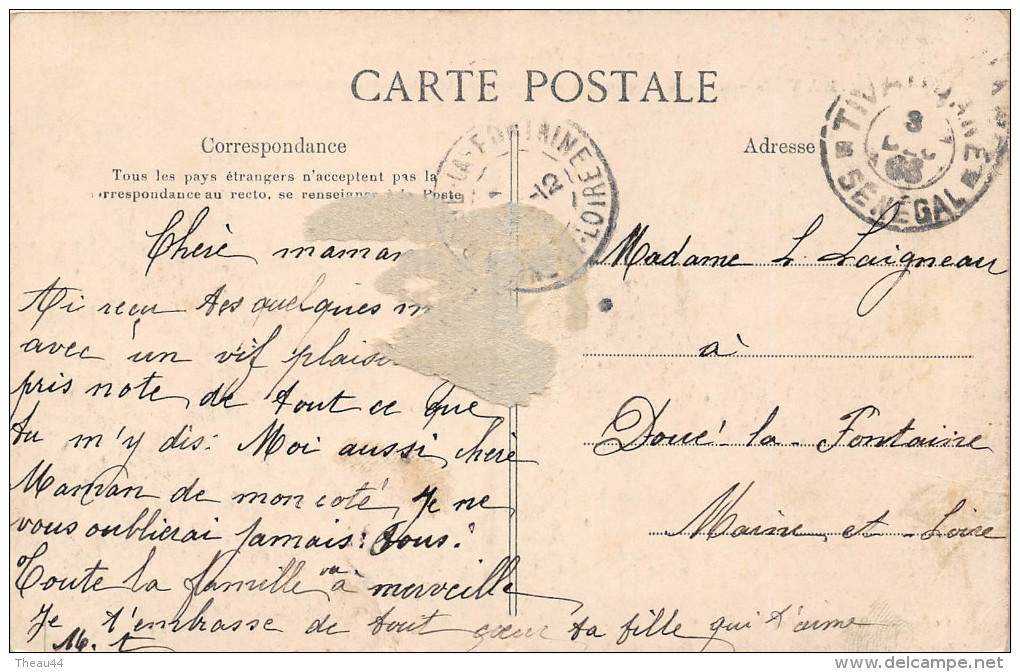 CARTE POSTALE
Correspondance
Adresse
Tous les pays étrangers n'acceptent pas la
rrespondance au recto, se renseigner à la Poste
LA-FONTAINE
12
LOIRE
TIVAOUANE
3
DEC
08
SENÉGAL
Chère maman
Ai reçu tes quelques m
avec un vif plaisi
pris note de tout ce que
tu m'y dis. Moi aussi, chère
Maman de mon coté, Je ne
vous oublierai jamais! tous!
Toute la famille va à merveille
Je t'embrasse de tout cœur ta fille qui t'aime
M. t
Madame L. Laigneau
à
Doué-la-Fontaine
Maine et Loire
Theau44
delcampe.net